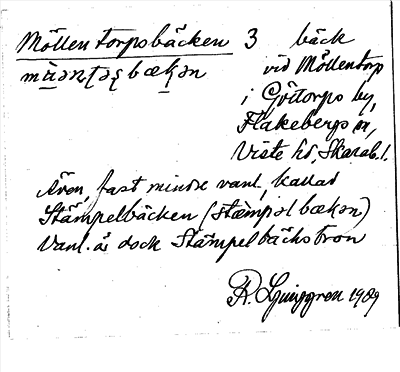 Möllentorpsbäcken 3 bäck
vid Möllentorp
bækən
i Göttorps by,
Flakebergs sn,
Viste hd, Skarab. l.
Även, fast mindre vanl., kallad
Stämpelbäcken (stæmpəl bækən)
Vanl. är dock Stämpelbäckstron
R. Ljunggren 1909